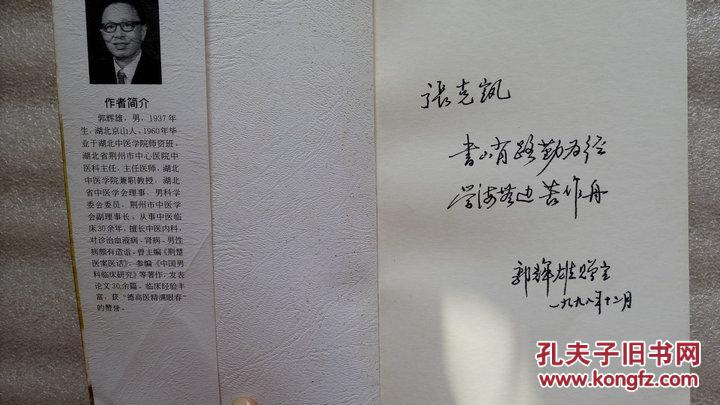 作者简介
郭辉雄，男，1937年
生，湖北京山人，1960年毕
业于湖北中医学院师资班，
湖北省荆州市中心医院中
医科主任，主任医师，湖北
中医学院兼职教授，湖北
省中医学会理事，男科学
会委员，荆州市中医学
会副理事长。从事中医临
床30余年，擅长中医内科，
对诊治血液病、肾病、男性
病颇有造诣。曾主编《荆楚
医案医话》，参编《中国男
科临床研究》等著作，发表
论文30余篇。临床经验丰
富，获“德高医精满眼春”
的赞誉。
張克凯
書山有路勤为径
学海无边苦作舟
郭辉雄赠言
一九九八年十二月
孔夫子旧书网
www.kongfz.com